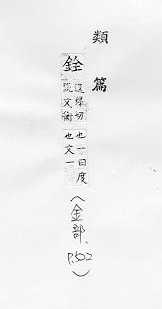 類篇
銓
逡緣切
說文衡
也一曰度
也文一
(金部, P.502)